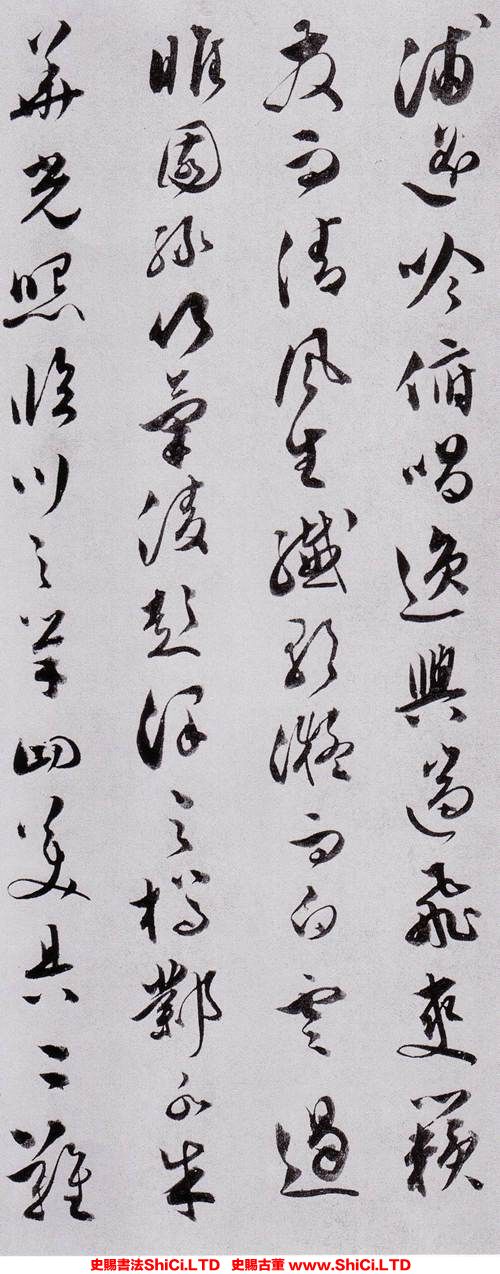 浦遥吟俯唱逸興遄飛爽籟
發而清風生纖歌凝而白雲遏
睢園綠竹氣凌彭澤之樽鄴水朱
華光照臨川之筆四美具二難
史賜書法ShiCi.LTD 史賜古董 www.ShiCi.LTD